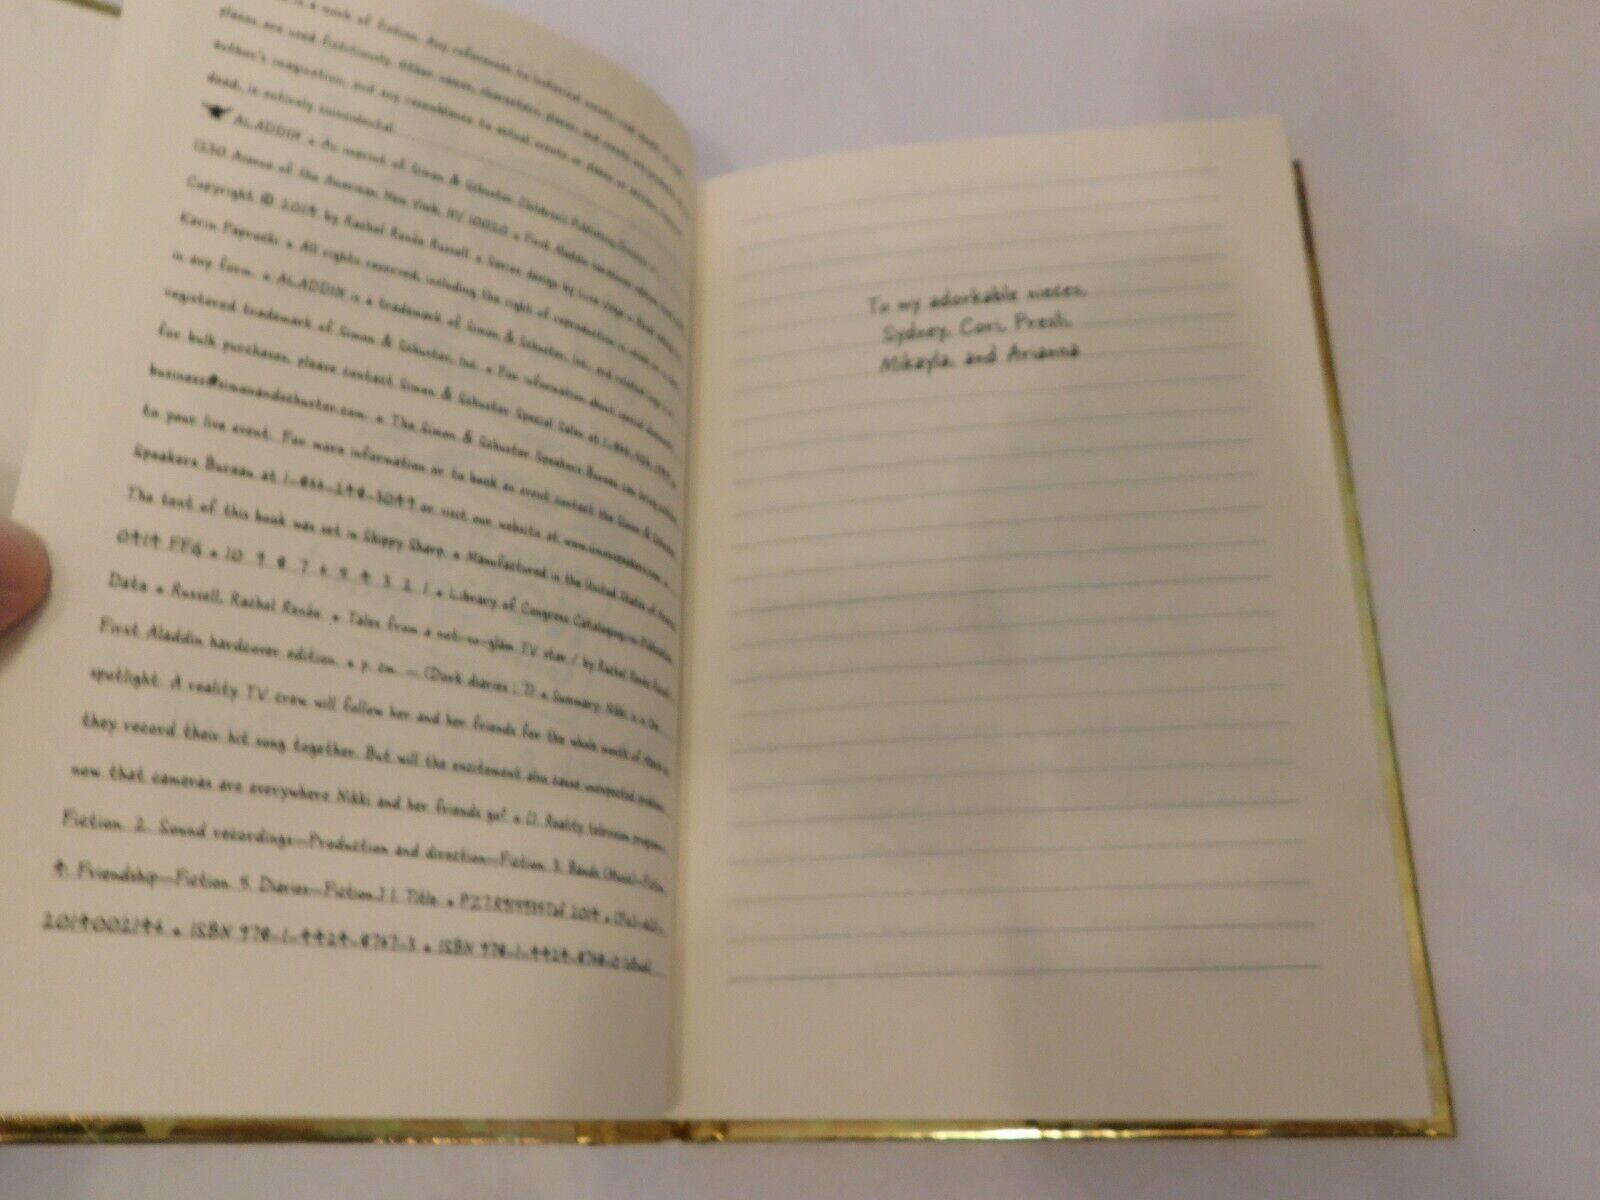 is a work of fiction. Any references to historical events, real people, or real
places are used fictitiously. Other names, characters, places, and events are products of the
author's imagination, and any resemblance to actual events or places or persons, living or
dead, is entirely coincidental.
ALADDIN • An imprint of Simon & Schuster Children's Publishing Division •
1230 Avenue of the Americas, New York, NY 10020 • First Aladdin hardcover edition
Copyright © 2014 by Rachel Renée Russell • Series design by Lisa Vega •
Karin Paprocki • All rights reserved, including the right of reproduction in whole or in part
in any form. • ALADDIN is a trademark of Simon & Schuster, Inc., and related logo is a
registered trademark of Simon & Schuster, Inc. • For information about special discounts
for bulk purchases, please contact Simon & Schuster Special Sales at 1-866-506-1949 or
business@simonandschuster.com. • The Simon & Schuster Speakers Bureau can bring authors
to your live event. For more information or to book an event contact the Simon & Schuster
Speakers Bureau at 1-866-248-3049 or visit our website at www.simonspeakers.com. •
The text of this book was set in Skippy Sharp. • Manufactured in the United States of America
0414 FFG • 10 9 8 7 6 5 4 3 2 1 • Library of Congress Cataloging-in-Publication
Data • Russell, Rachel Renée. • Tales from a not-so-glam TV star / by Rachel Renée Russell.
First Aladdin hardcover edition. • p. cm. — (Dork diaries ; 7) • Summary: Nikki is in the
spotlight. A reality TV crew will follow her and her friends for the whole month of March as
they record their hit song together. But will the excitement also cause unexpected problems
now that cameras are everywhere Nikki and her friends go? • [1. Reality television programs—
Fiction. 2. Sound recordings—Production and direction—Fiction. 3. Bands (Music)—Fiction.
4. Friendship—Fiction. 5. Diaries—Fiction.] I. Title. • PZ7.R915935Taf 2014 • [Fic]—dc23
2014002146 • ISBN 978-1-4424-8767-3 • ISBN 978-1-4424-8768-0 (eBook)
To my adorkable nieces,
Sydney, Cori, Presli,
Mikayla, and Arianna